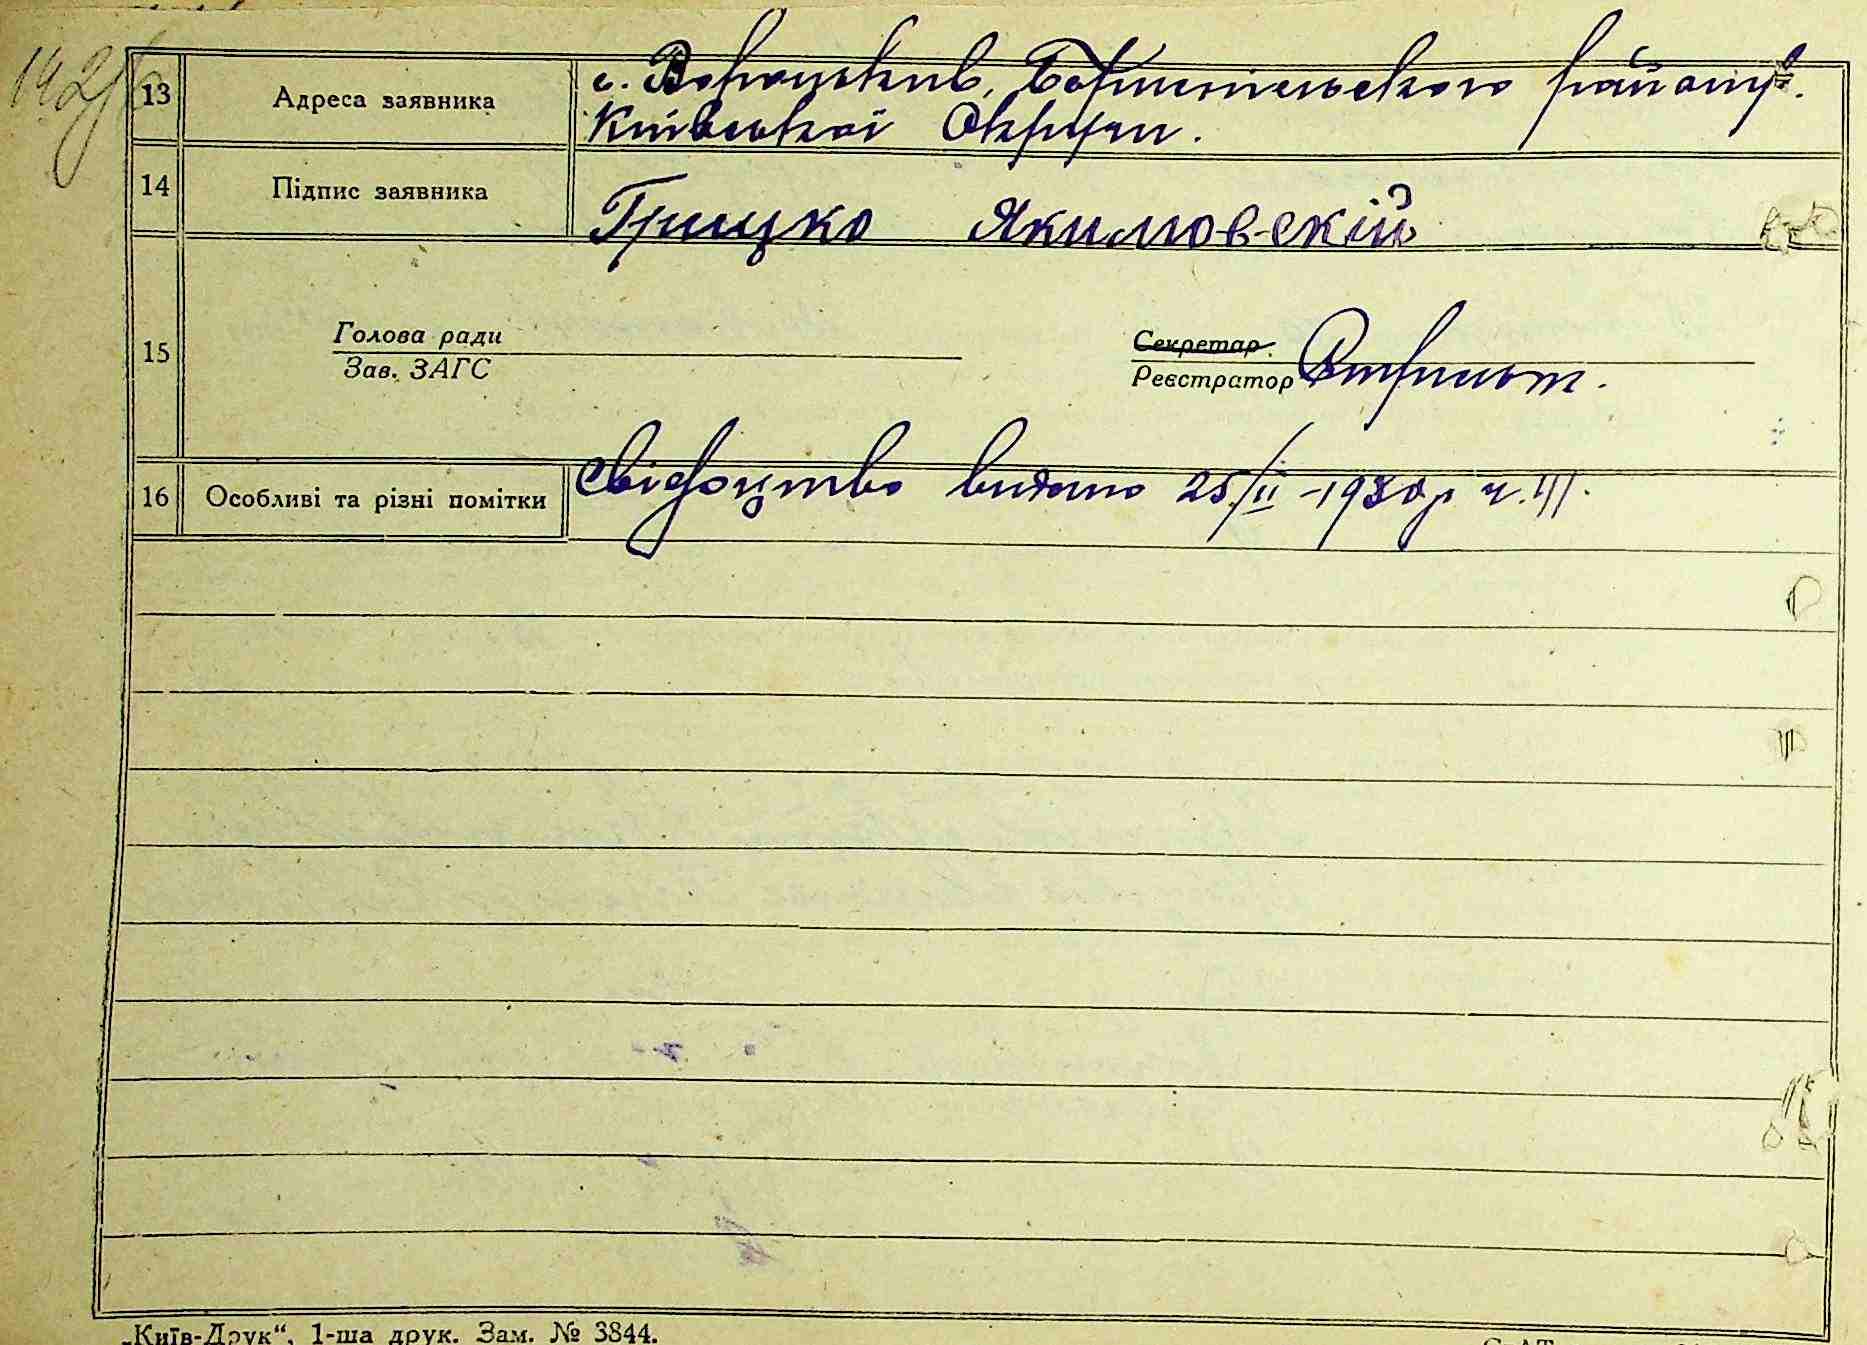 13 Адреса заявника с. Вороньків, Бориспільського району.
Київської Округи.
14 Підпис заявника Грицко Якимовскій
15 Голова ради Секретар.
Зав. ЗАГС Реєстратор
16 Особливі та різні помітки Свідоцтво видано 25/II-1930р ч. 111.
„Київ-Друк“, 1-ша друк. Зам. № 3844.